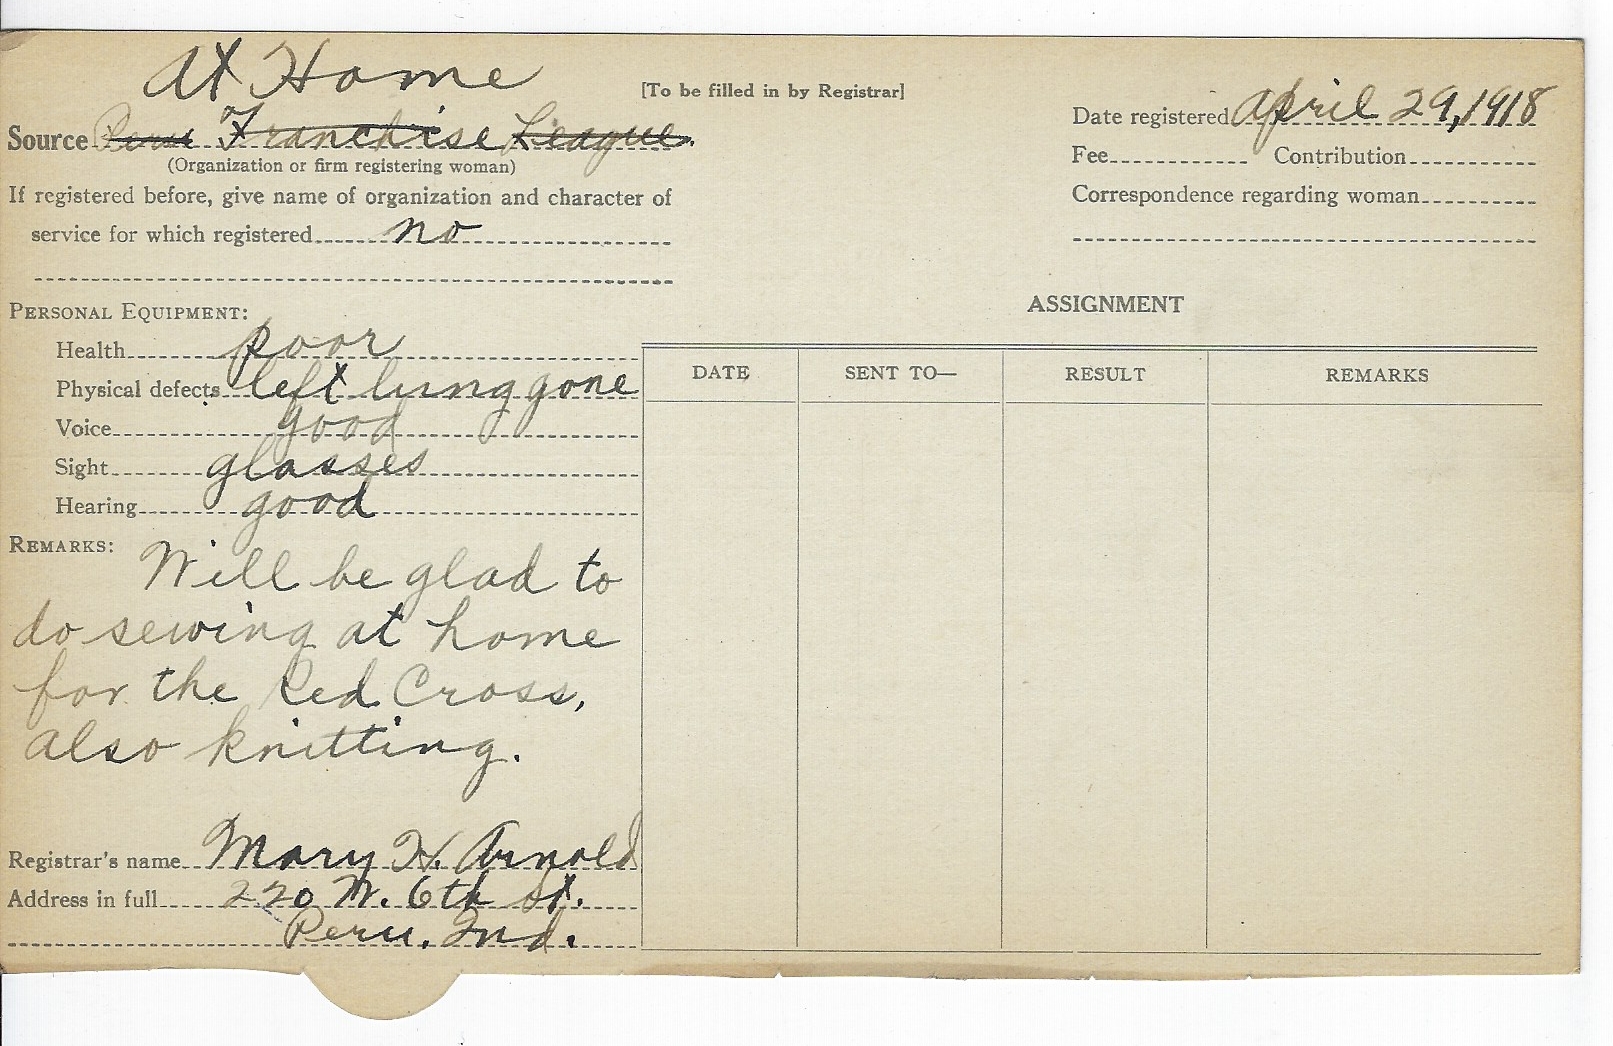 At Home
[To be filled in by Registrar]
Source Peru Franchise League.
(Organization or firm registering woman)
If registered before, give name of organization and character of
service for which registered no
Date registered April 29, 1918
Fee Contribution
Correspondence regarding woman
PERSONAL EQUIPMENT:
Health poor
Physical defects left lung gone
Voice good
Sight glasses
Hearing good
REMARKS: Will be glad to
do sewing at home
for the Red Cross,
also knitting.
Registrar's name Mary H. Arnold
Address in full 220 W. 6th St.
Peru, Ind.
ASSIGNMENT
DATE SENT TO— RESULT REMARKS